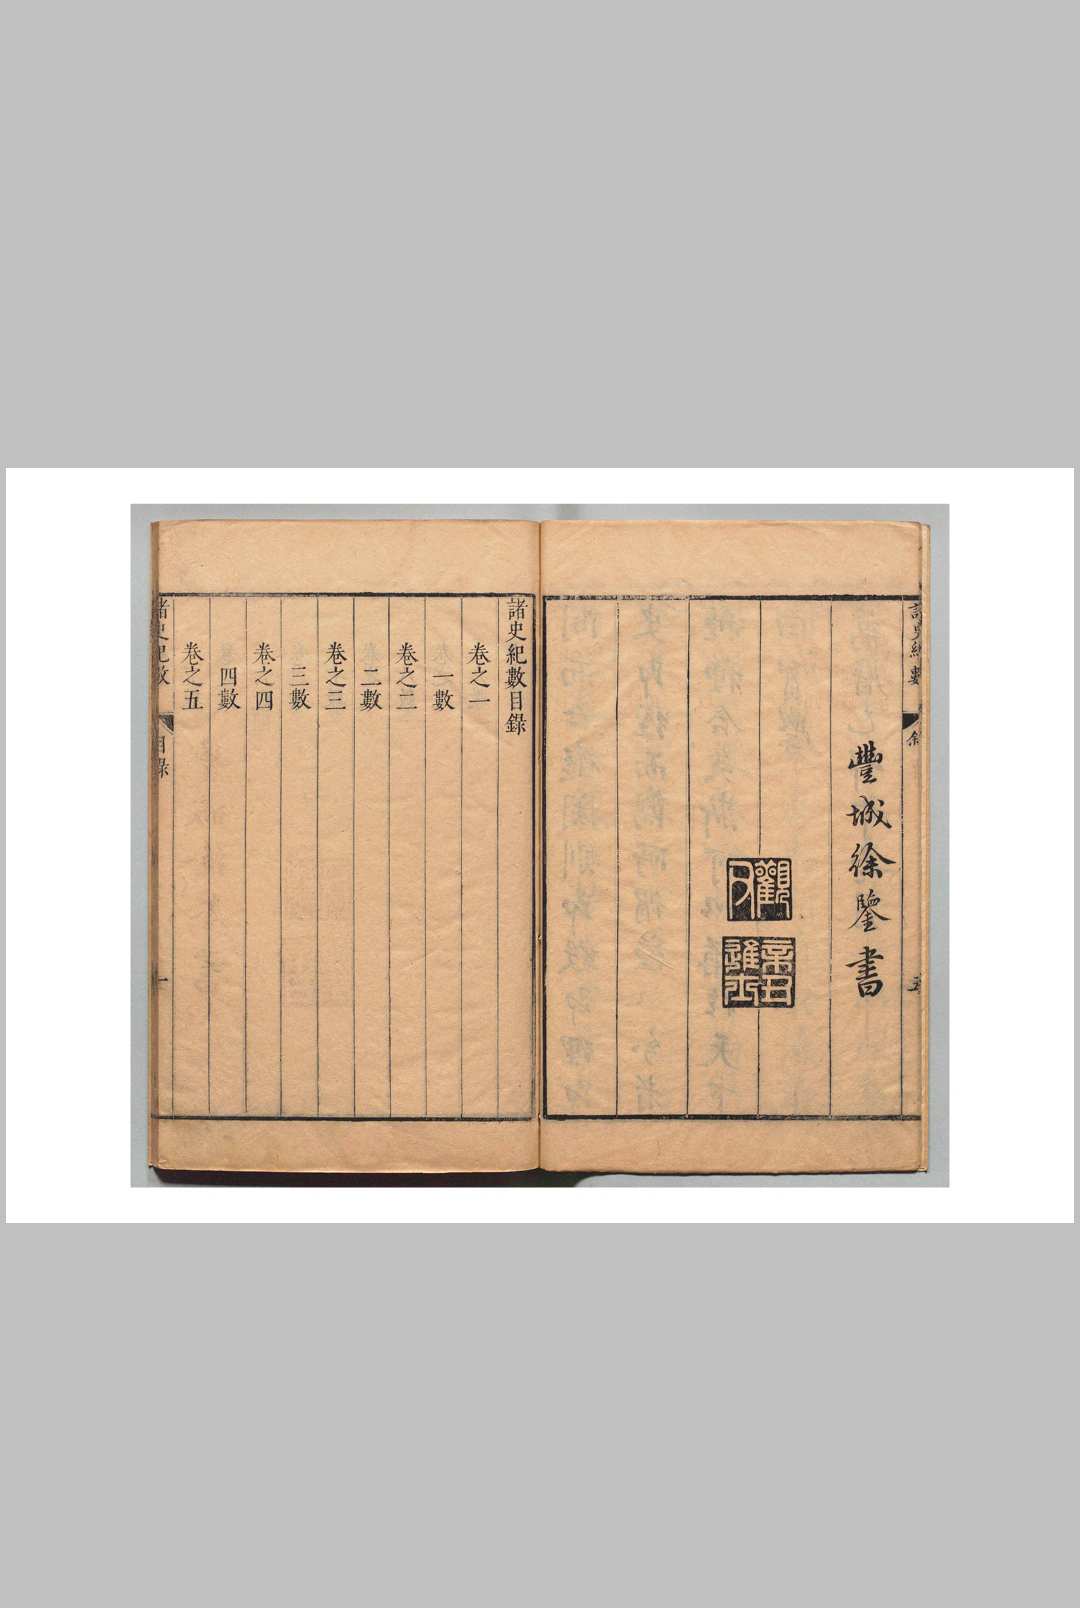 豐城徐鑒書
觀父
辛丑進士
諸史紀數目錄
卷之一
一數
卷之二
二數
卷之三
三數
卷之四
四數
卷之五
諸史紀數
目錄
一